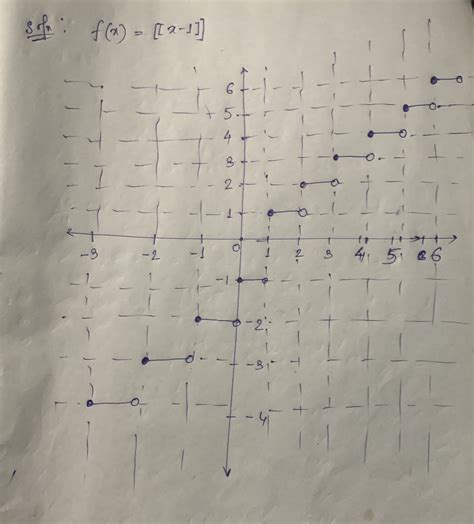 Soln: f(x) = [[x-1]]
6
5
4
3
2
1
-3 -2 -1 0 1 2 3 4 5 6
-1
-2
-3
-4